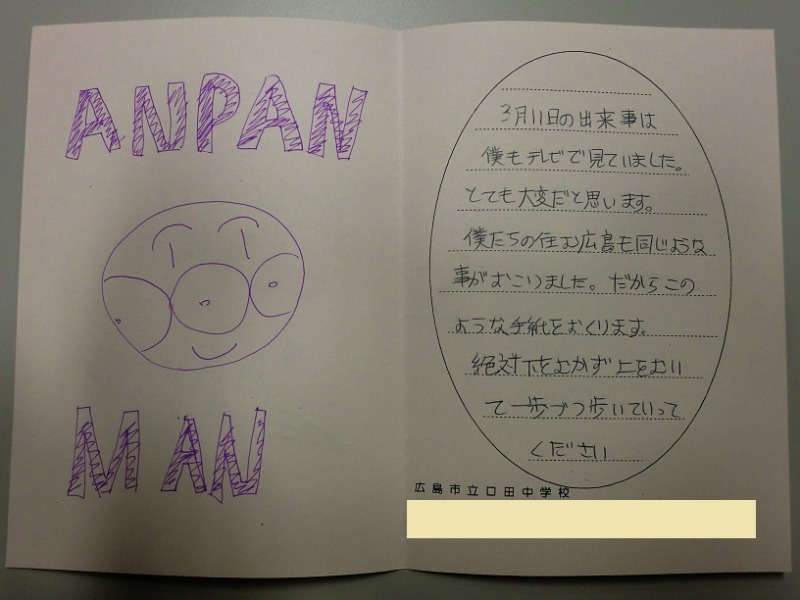 ANPAN
MAN
3月11日の出来事は
僕もテレビで見ていました。
とても大変だと思います。
僕たちの住む広島も同じような
事がおこりました。だからこの
ような手紙をおくります。
絶対下をむかず上をむい
て一歩づつ歩いていって
ください
広島市立口田中学校